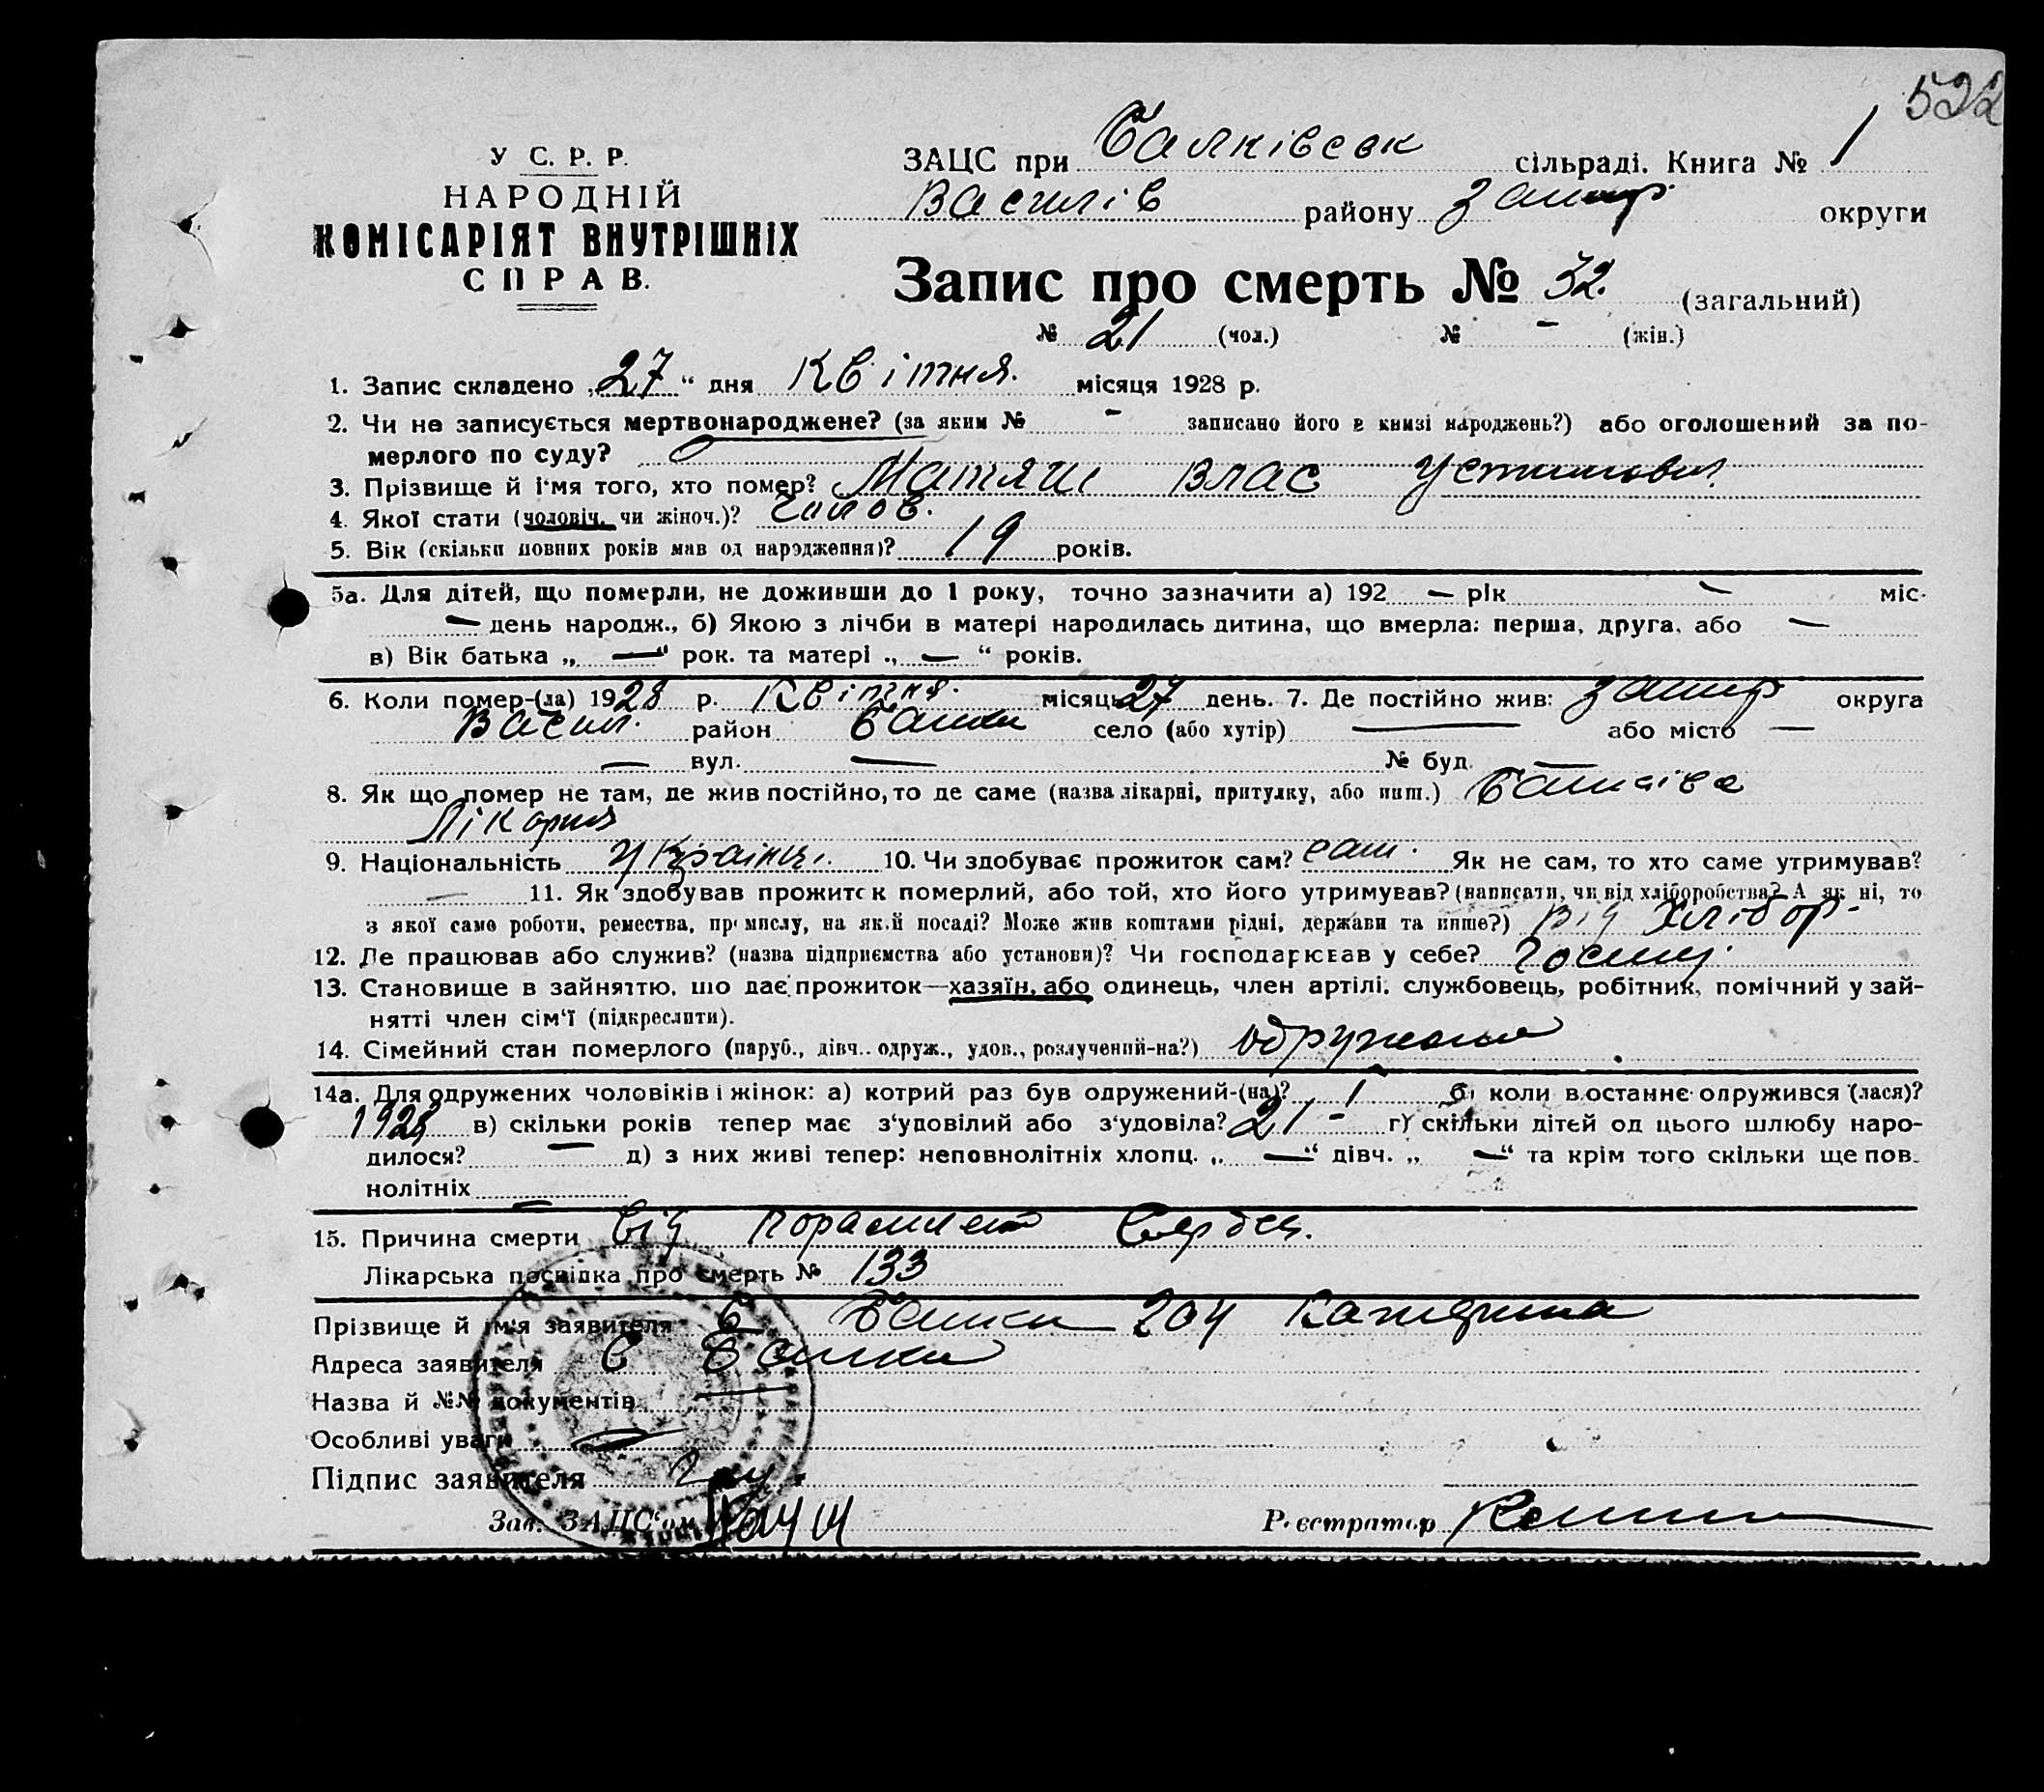 522
У С. Р. Р.
НАРОДНІЙ
КОМІСАРІЯТ ВНУТРІШНІХ
СПРАВ.
ЗАЦС при Балківськ сільраді. Книга № 1
Василів району Запор. округи
Запис про смерть № 32. (загальний)
№ 21 (чол.) № - (жін.)
1. Запис складено „27“ дня Квітня. місяця 1928 р.
2. Чи не записується мертвонароджене? (за яким № - записано його в книзі народжень?) або оголошений за по-
мерлого по суду?
3. Прізвище й ім'я того, хто помер? Матяш Влас Устимович.
4. Якої стати (чоловіч. чи жіноч.)? чолов.
5. Вік (скільки повних років мав од народження)? 19 років.
5а. Для дітей, що померли, не доживши до 1 року, точно зазначити а) 192 — рік — міс.
— день народж., б) Якою з лічби в матері народилась дитина, що вмерла: перша, друга, або —
в) Вік батька „ — “ рок. та матері „ — “ років.
6. Коли помер-(ла) 1928 р. Квітня. місяць 27 день. 7. Де постійно жив: Запор округа
Васил. район Балки село (або хутір) — або місто —
— вул. — № буд. —
8. Як що помер не там, де жив постійно, то де саме (назва лікарні, притулку, або инш.)
Лікарня
9. Національність Українц. 10. Чи здобуває прожиток сам? сам. Як не сам, то хто саме утримував?
— 11. Як здобував прожиток померлий, або той, хто його утримував? (написати, чи від хліборобства? А як ні, то
з якої саме роботи, ремества, промислу, на якій посаді? Може жив коштами рідні, держави та инше?) Від Хлібор-
12. Де працював або служив? (назва підприємства або установи)? Чи господарював у себе?
13. Становище в зайняттю, що дає прожиток—хазяїн, або одинець, член артілі, службовець, робітник, помічний у зай-
нятті член сім'ї (підкреслити).
14. Сімейний стан померлого (паруб., дівч.. одруж., удов., розлучений-на?) одружений
14а. Для одружених чоловіків і жінок: а) котрий раз був одружений-(на)? 1 б) коли востаннє одружився (лася)?
1928 в) скільки років тепер має з'удовілий або з'удовіла? 21 - г) скільки дітей од цього шлюбу наро-
дилося? — д) з них живі тепер: неповнолітніх хлопц. „ — “ дівч. „ — “ та крім того скільки ще пов.
нолітніх —
15. Причина смерти Від Сердця.
Лікарська посвідка про смерть № 133
Прізвище й ім'я заявителя Катерина
Адреса заявителя С Балки
Назва й №№ документів —
Особливі уваги
Підпис заявителя
Зав. ЗАЦС'ом
Реєстратор